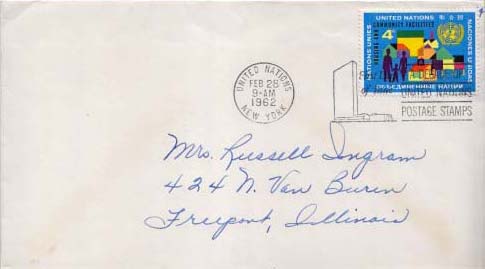 UNITED NATIONS 聯合國
COMMUNITY FACILITIES
HOUSING AND
4¢
NATIONS UNIES
NACIONES UNIDAS
ОБЪЕДИНЕННЫЕ НАЦИИ
UNITED NATIONS
FEB 28
9-AM
1962
NEW YORK
UNITED NATIONS
POSTAGE STAMPS
Mrs. Russell Ingram
424 N. Van Buren
Freeport, Illinois